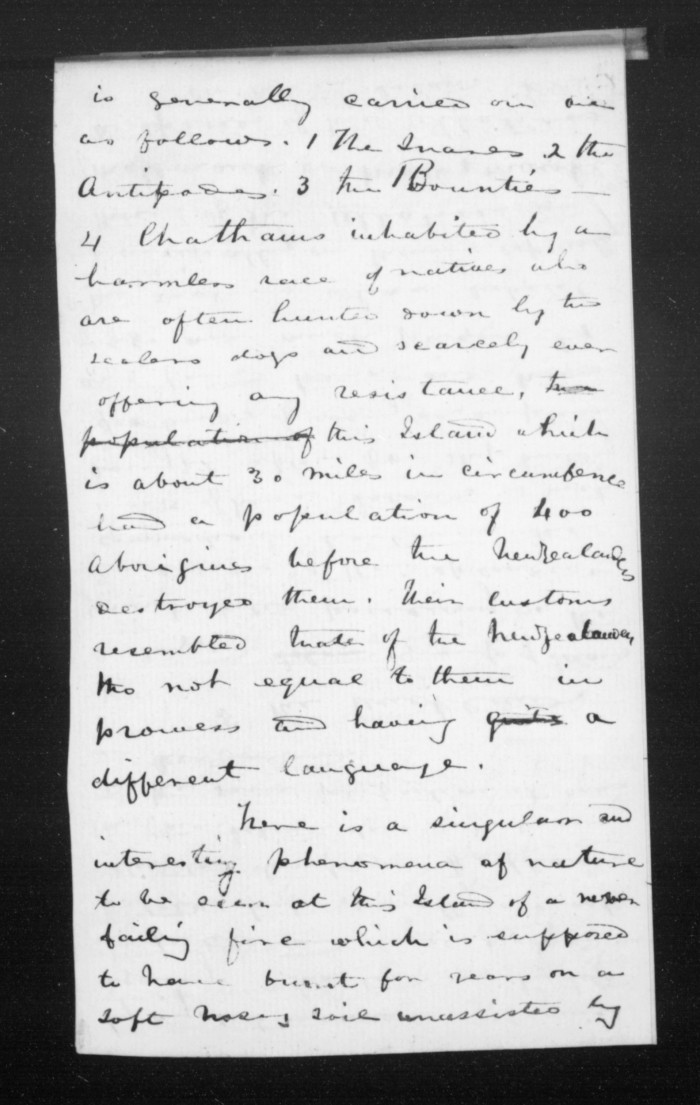 is generally carried on are
as follows. 1 The Snares 2 the
Antipodes. 3 the Bounties
4 Chathams inhabited by a
harmless race of natives who
are often hunted down by the
sealers dogs and scarcely ever
offering any resistance, the
population of this Island which
is about 30 miles in circumfence
had a population of 400
Aborigines before the Newzealanders
destroyed them. Their customs
resembled that of the Newzealander
tho not equal to them in
prowess and having quite a
different language.
There is a singular and
interesting phenomena of nature
to be seen at this Island of a never
failing fire which is supposed
to have burnt for years on a
soft soil unassisted by